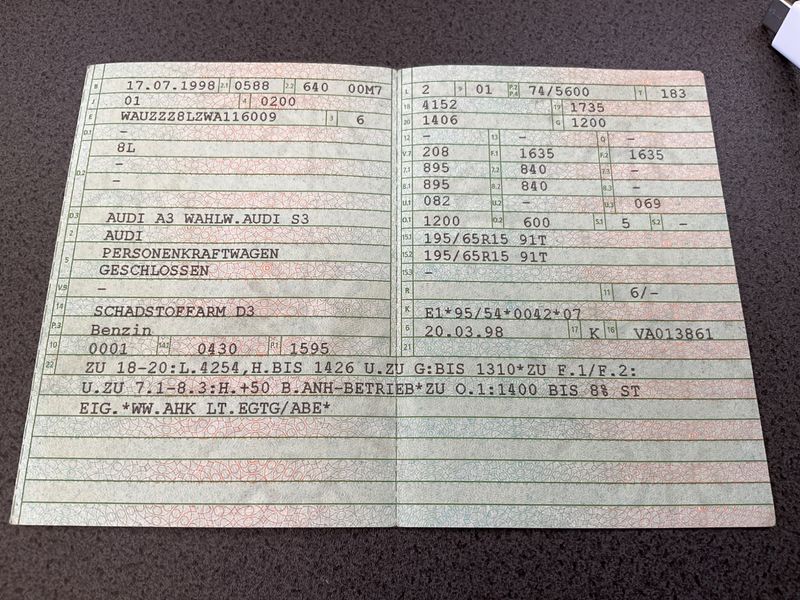 B 17.07.1998 2.1 0588 2.2 640 00M7
J 01 4 0200
E WAUZZZ8LZWA116009 3 6
D.1 -
8L
D.2 -
-
D.3 AUDI A3 WAHLW.AUDI S3
2 AUDI
5 PERSONENKRAFTWAGEN
GESCHLOSSEN
V.9 -
14 SCHADSTOFFARM D3
P.3 Benzin
10 0001 14.1 0430 P.1 1595
L 2 9 01 P.2 P.4 74/5600 T 183
18 4152 19 1735
20 1406 G 1200
12 - 13 - Q -
V.7 208 F.1 1635 F.2 1635
7.1 895 7.2 840 7.3 -
8.1 895 8.2 840 8.3 -
U.1 082 U.2 - U.3 069
O.1 1200 O.2 600 S.1 5 S.2 -
15.1 195/65R15 91T
15.2 195/65R15 91T
15.3 -
R 11 6/-
K E1*95/54*0042*07
6 20.03.98 17 K 16 VA013861
21
22 ZU 18-20:L.4254,H.BIS 1426 U.ZU G:BIS 1310*ZU F.1/F.2:
U.ZU 7.1-8.3:H.+50 B.ANH-BETRIEB*ZU O.1:1400 BIS 8% ST
EIG.*WW.AHK LT.EGTG/ABE*